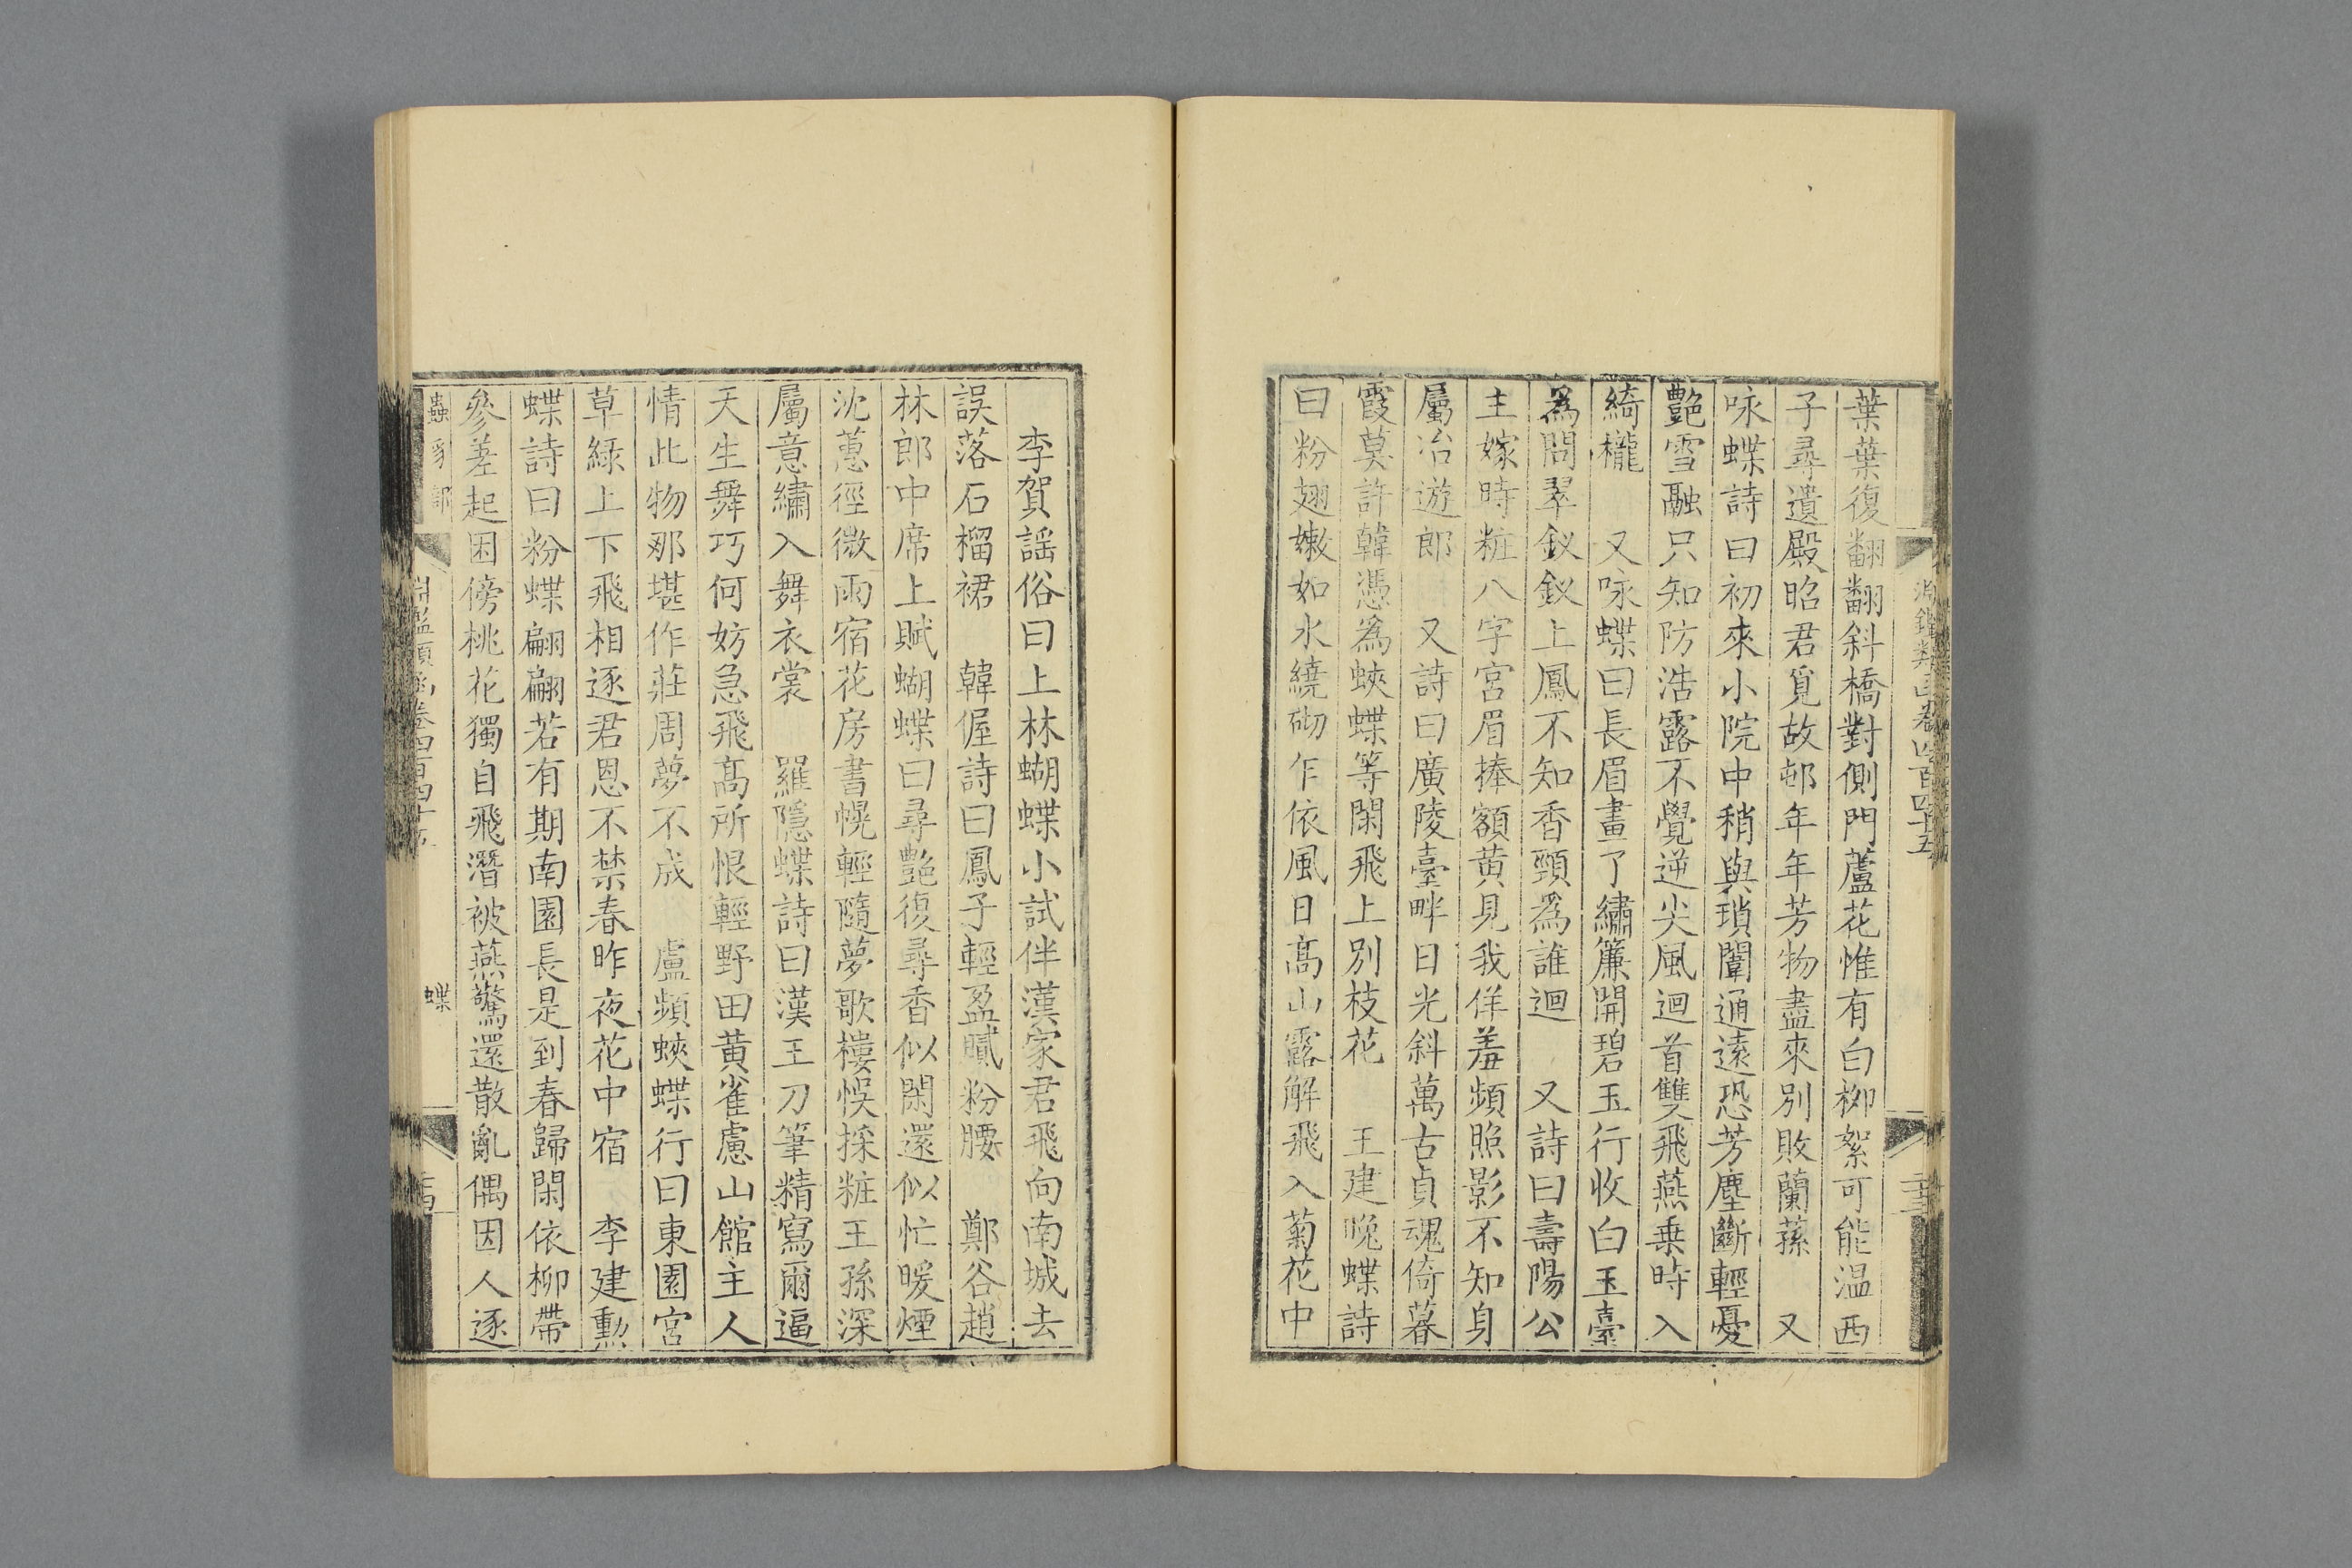 葉葉復翻翻斜橋對側門蘆花惟有白柳絮可能温西
子尋遺殿昭君覓故邨年年芳物盡來別敗蘭蓀　又
咏蝶詩曰初來小院中稍與瑣闈通遠恐芳塵斷輕憂
艷雪融只知防浩露不覺逆尖風迴首雙飛燕乗時入
綺櫳　又咏蝶曰長眉畫了繡簾開碧玉行收白玉臺
為問翠釵釵上鳳不知香頸為誰迴　又詩曰壽陽公
主嫁時粧八字宮眉捧額黄見我佯羞頻照影不知身
屬冶遊郎　又詩曰廣陵臺畔日光斜萬古貞魂倚暮
霞莫許韓憑為蛺蝶等閑飛上別枝花　王建晚蝶詩
曰粉翅嫩如水繞砌乍依風日髙山露解飛入菊花中
李賀謡俗曰上林蝴蝶小試伴漢家君飛向南城去
誤落石榴裙　韓偓詩曰鳳子輕盈膩粉腰　鄭谷趙
林郎中席上賦蝴蝶曰尋艷復尋香似閑還似忙暖煙
沈蕙徑微雨宿花房書幌輕隨夢歌樓悞採粧王孫深
屬意繡入舞衣裳　羅隱蝶詩曰漢王刀筆精寫爾逼
天生舞巧何妨急飛髙所恨輕野田黄雀慮山館主人
情此物那堪作莊周夢不成　盧頻蛺蝶行曰東園宮
草緑上下飛相逐君恩不禁春昨夜花中宿　李建勲
蝶詩曰粉蝶翩翩若有期南園長是到春歸閑依柳帶
參差起困傍桃花獨自飛潛被燕驚還散亂偶因人逐
蟲豸部　淵鑑類函卷四百四十五　蝶